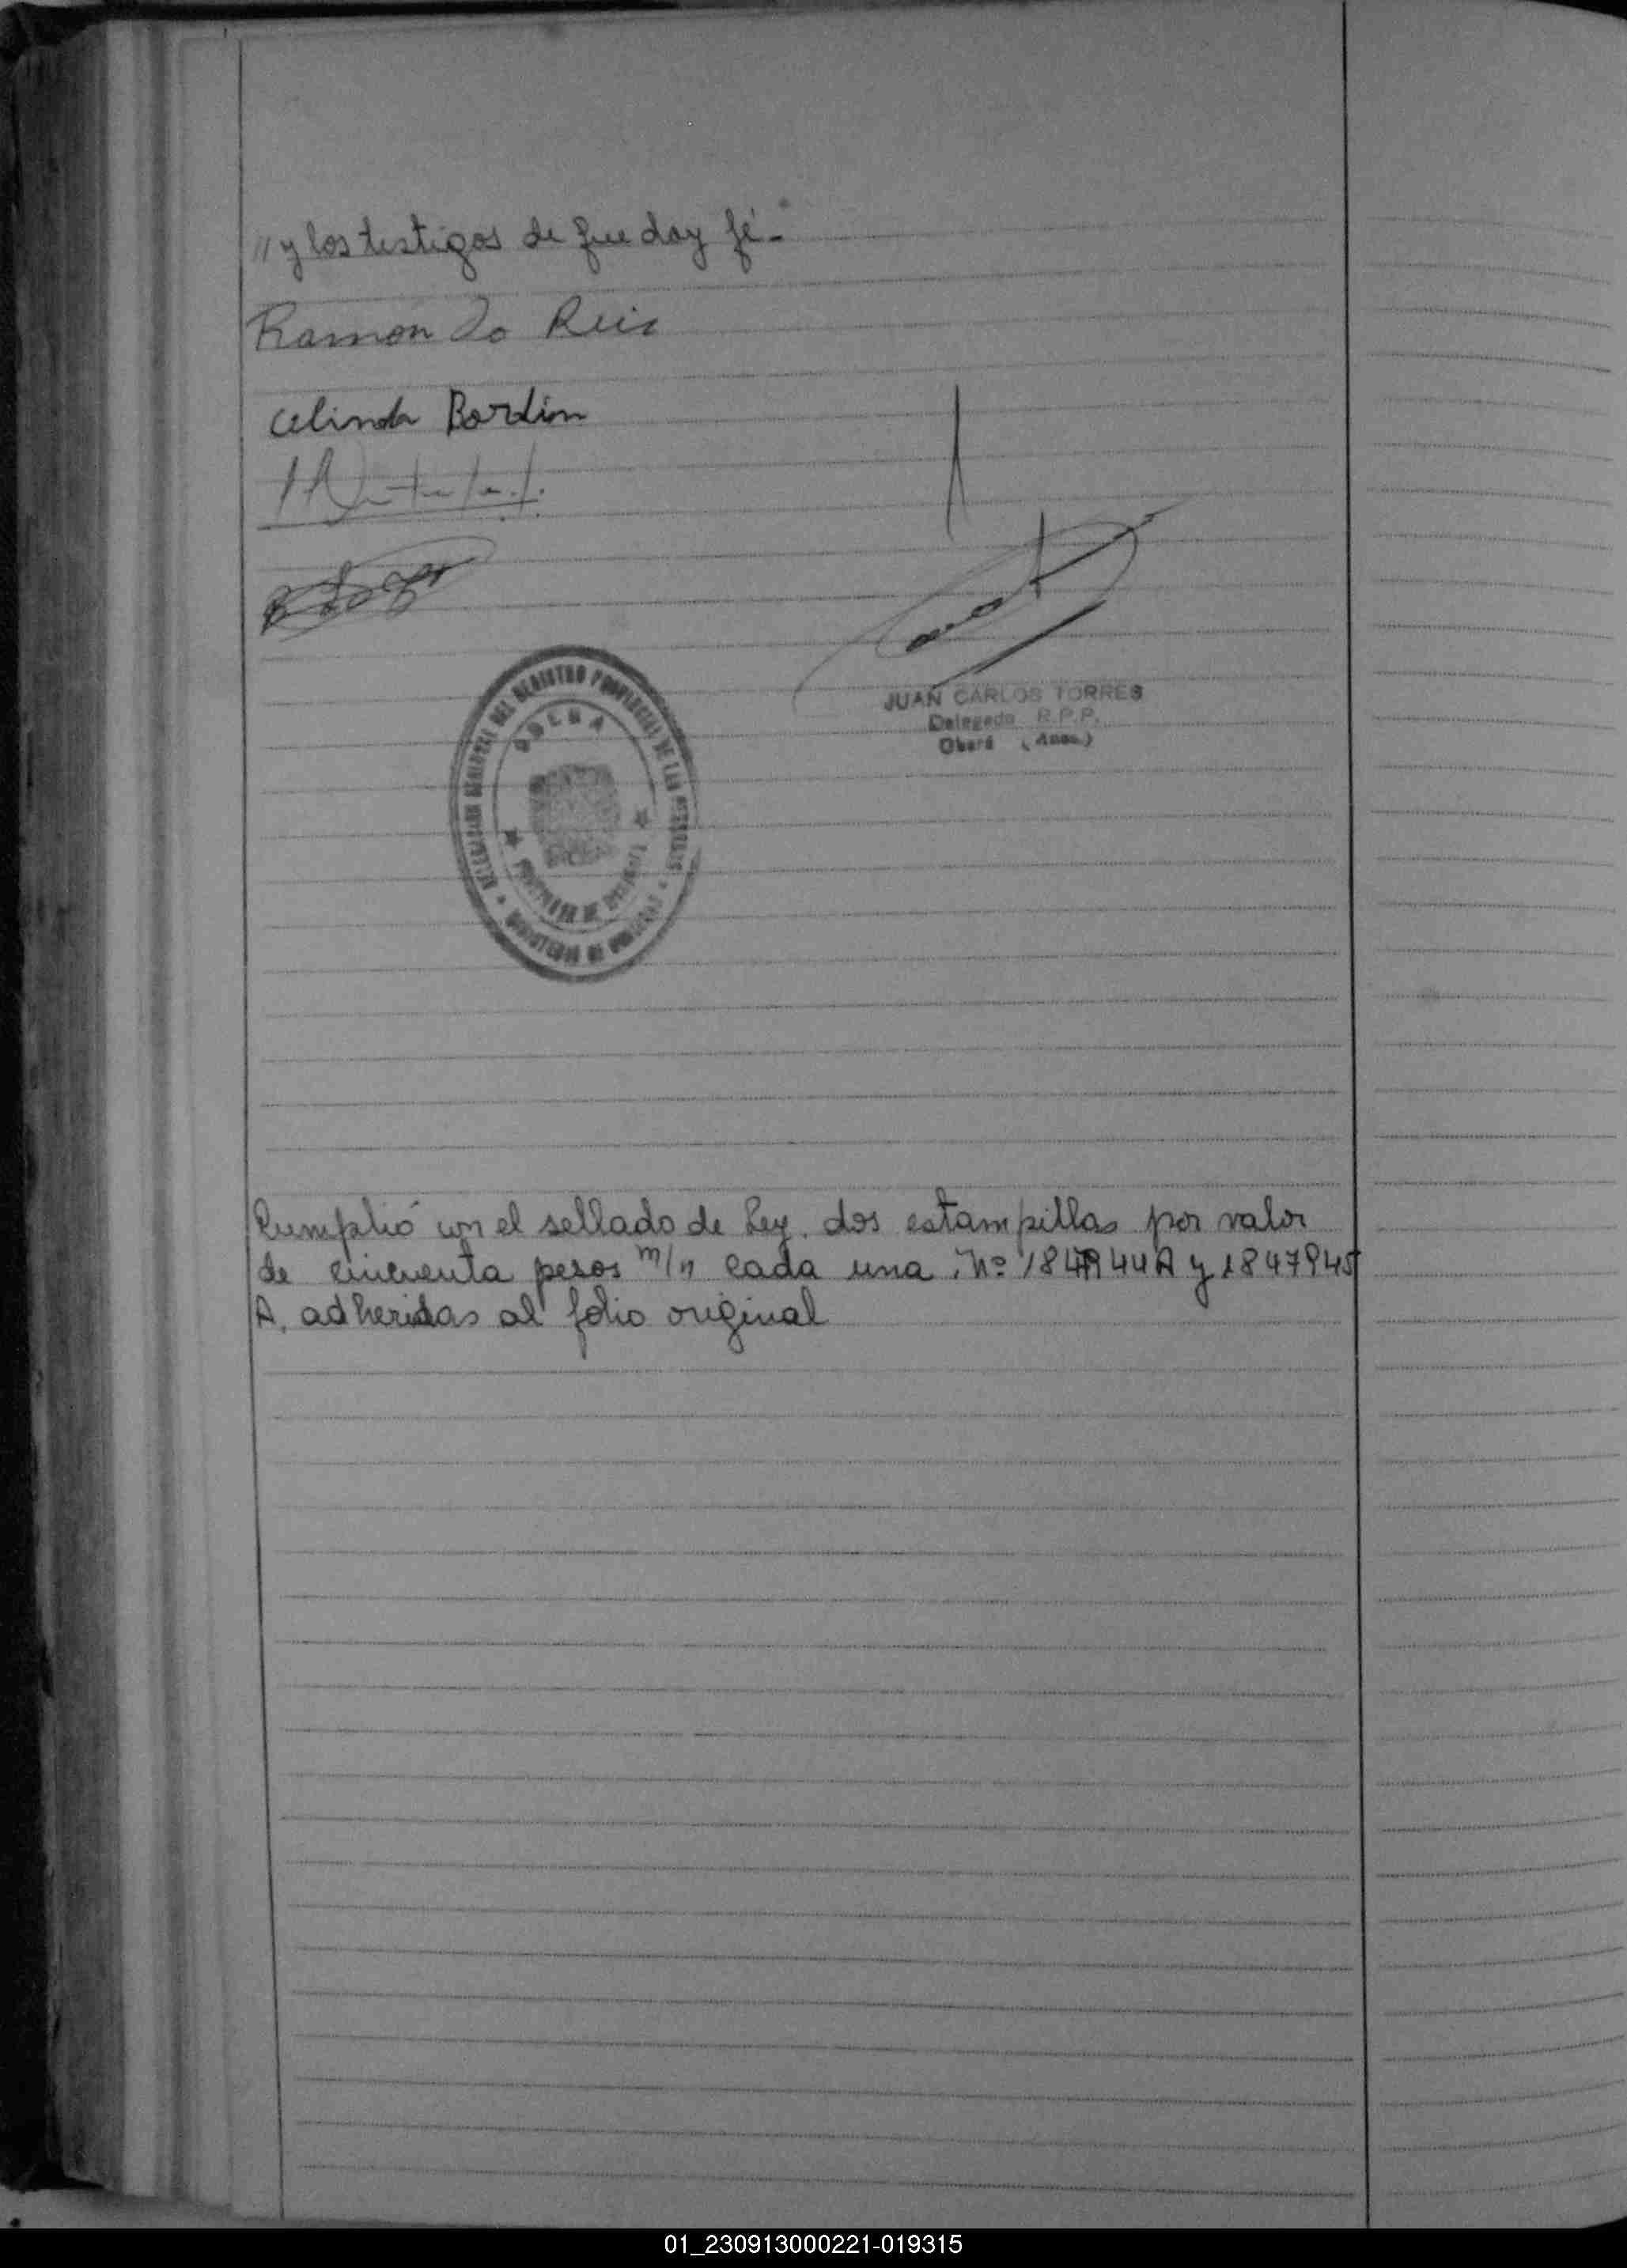 "y los testigos de que doy fé-"
Ramon Do Reis
Celinda Bordin
JUAN CARLOS TORRES
Delegado R.P.P.
Oberá (Mnes.)
DELEGACION REGIONAL DEL REGISTRO PROVINCIAL DE LAS PERSONAS
PROVINCIA DE MISIONES
Cumplió con el sellado de Ley. dos estampillas por valor
de cincuenta pesos m/n cada una. Nº 1847944A y 1847945
A. adheridas al folio original
01_230913000221-019315